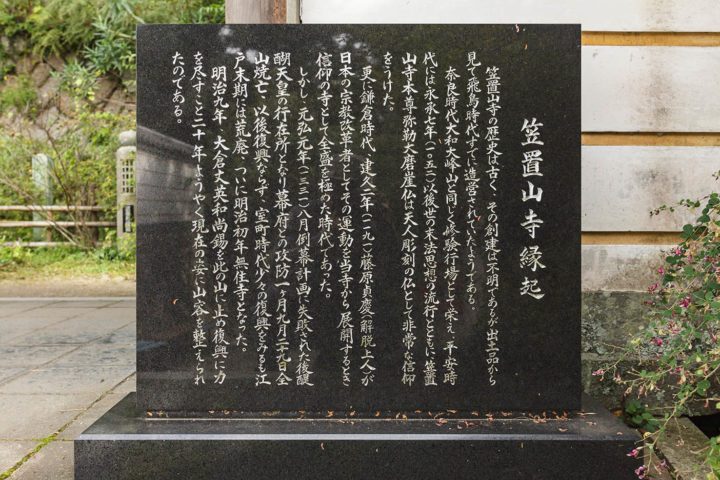 笠置山寺縁起
笠置山寺の歴史は古く、その創建は不明であるが出土品から
見て飛鳥時代すでに造営されていたようである。
奈良時代大和大峰山と同じく修験行場として栄え、平安時
代には永承七年(一〇五二)以後世の末法思想の流行とともに、笠置
山寺本尊弥勒大磨崖仏は天人彫刻の仏として非常な信仰
をうけた。
更に鎌倉時代、建久二年(一一九一)藤原貞慶(解脱上人)が
日本の宗教改革者としてその運動を当寺から展開するとき
信仰の寺として全盛を極めた時代であった。
しかし、元弘元年(一三三一)八月倒幕計画に失敗された後醍
醐天皇の行在所となり幕府との攻防一ヶ月九月二十九日全
山焼亡、以後復興ならず、室町時代少々の復興をみるも江
戸末期には荒廃、ついに明治初年無住寺となった。
明治九年、大倉丈英和尚錫を此の山に止め復興に力
を尽すこと二十年ようやく現在の姿に山容を整えられ
たのである。